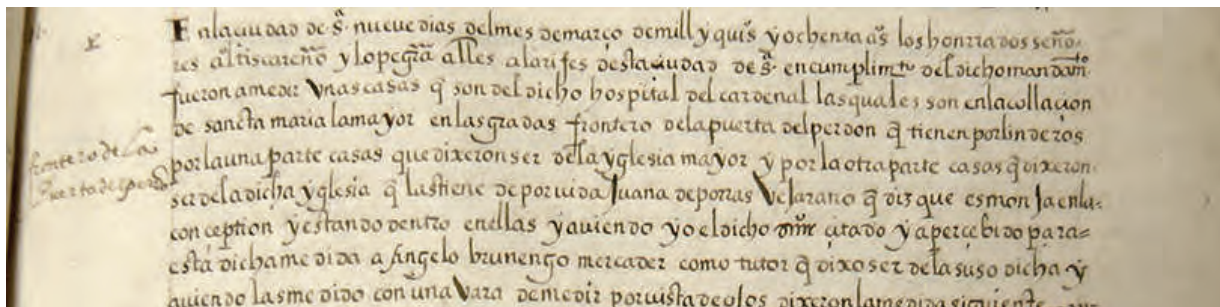 En la ciudad de sª. nueue dias del mes de março de mill y quisº y ochenta aºs los honrrados señо-
res alº tiscareño y lope grã alles alarifes desta ciudad de sª. en cumplimtº del dicho mandamtº
fueron a medir vnas casas q̃ son del dicho hospital del cardenal las quales son en la collacion
de sancta maria la mayor en las gradas frontero de la puerta del perdon q̃ tienen por linderos
frontero de la
puerta del perdõ
por la una parte casas que dixeron ser de la yglesia mayor y por la otra parte casas q̃ dixeron
ser de la dicha yglesia q̃ las tiene de por uida Juana de porras q̃ diz que es monja en la
conception y estando dentro en ellas y auiendo yo el dicho citado y apercebido para
esta dicha medida a Angelo brunengo mercader como tutor q̃ dixo ser de la suso dicha y
auiendo las medido con una vara de medir por vista de ojos dixeron la medida siguiente